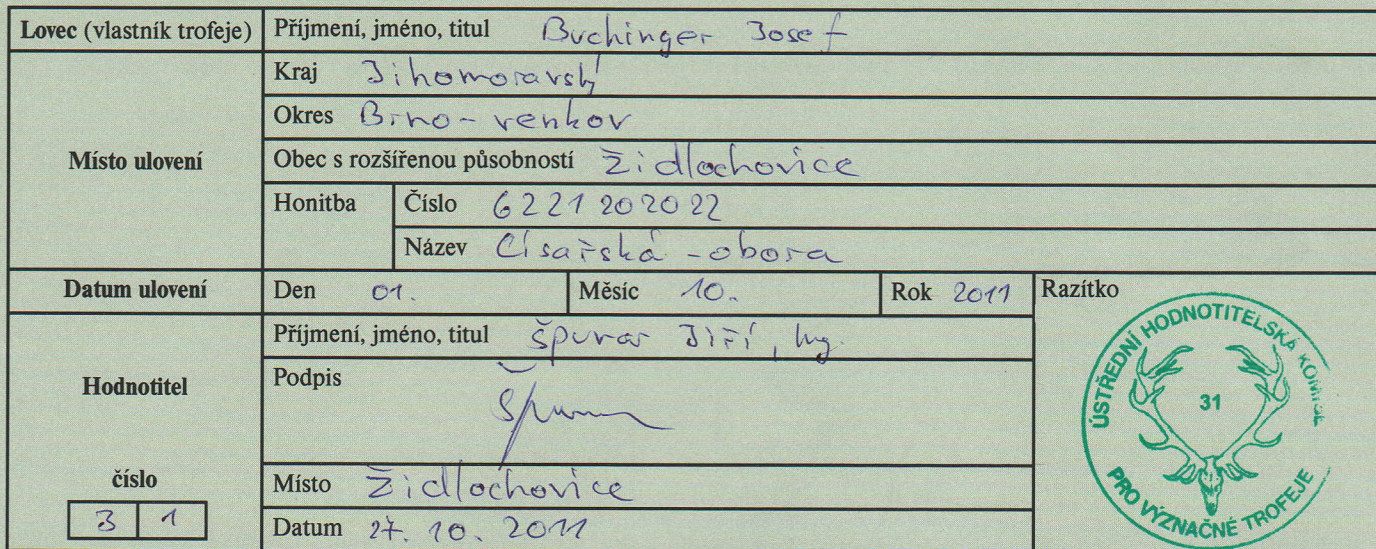 Lovec (vlastník trofeje) Příjmení, jméno, titul Buchinger Josef
Místo ulovení
Kraj Jihomoravský
Okres Brno-venkov
Obec s rozšířenou působností Židlochovice
Honitba Číslo 6221202022
Název Císařská-obora
Datum ulovení Den 01. Měsíc 10. Rok 2011 Razítko
Hodnotitel
Příjmení, jméno, titul Špunar Jiří, Ing.
Podpis
číslo
3 1
Místo Židlochovice
Datum 27. 10. 2011
ÚSTŘEDNÍ HODNOTITELSKÁ
31
PRO VÝZNAČNÉ TROFEJE